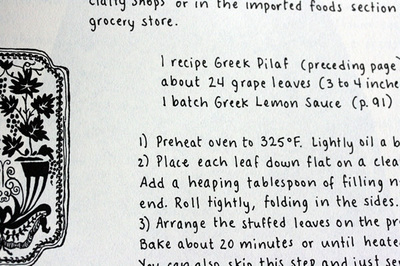 cialty shops or in the imported foods section
grocery store.
1 recipe Greek Pilaf (preceding page)
about 24 grape leaves (3 to 4 inche
1 batch Greek Lemon Sauce (p. 91)
1) Preheat oven to 325°F. Lightly oil a b
2) Place each leaf down flat on a clea
Add a heaping tablespoon of filling n
end. Roll tightly, folding in the sides.
3) Arrange the stuffed leaves on the pr
Bake about 20 minutes or until heate
You can also skip this step and just se